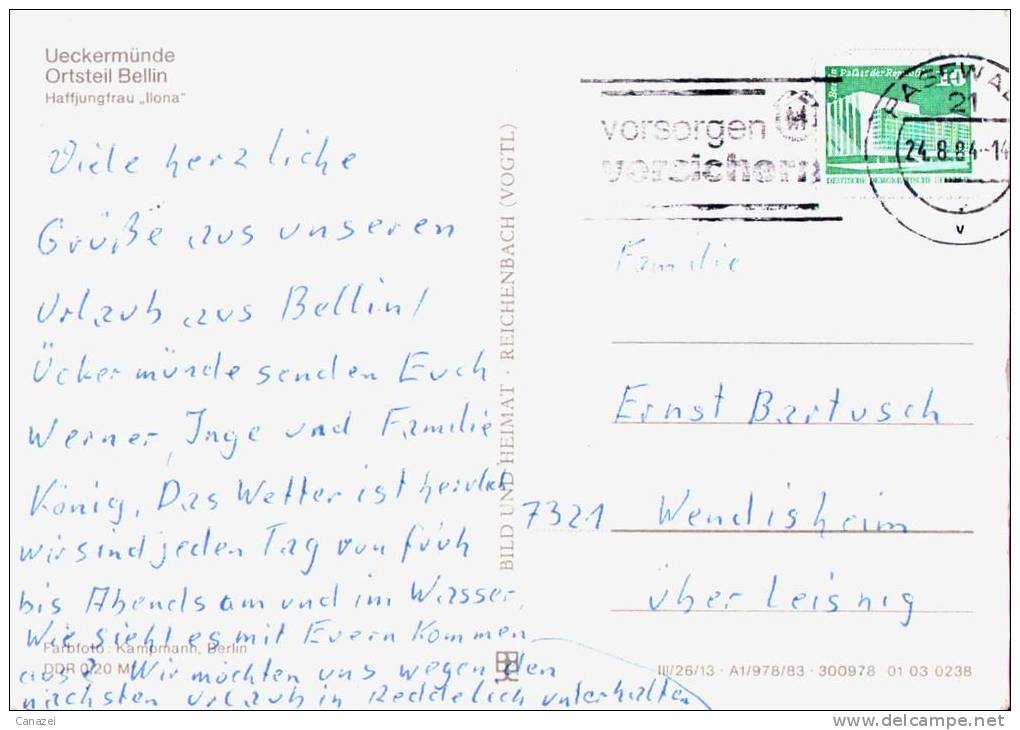 Ueckermünde
Ortsteil Bellin
Haffjungfrau „Ilona"
Viele herzliche
Grüße aus unseren
Urlaub aus Bellin/
Ückermünde senden Euch
Werner, Inge und Familie
König. Das Wetter ist herrlich
wir sind jeden Tag von früh
bis Abends am und im Wasser.
Wie sieht es mit Euern Kommen
aus? Wir möchten uns wegen den
nächsten Urlaub in Reddelich unterhalten
Farbfoto: Kampmann, Berlin
DDR 0,20 M
BILD UND HEIMAT · REICHENBACH (VOGTL)
vorsorgen
versichern
Berlin Palast der Republik
10
DEUTSCHE DEMOKRATISCHE
PASEWAL
21
24.8.84-14
v
Familie
Ernst Bartusch
7321 Wendisheim
über Leisnig
III/26/13 · A1/978/83 · 300978 01 03 0238
Canazei
delcampe.net